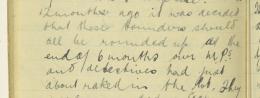 12 months ago it was decided
that those bounders should
all be rounded up at the
end of 6 months over 
and detectives had just
about raked in the lot. They